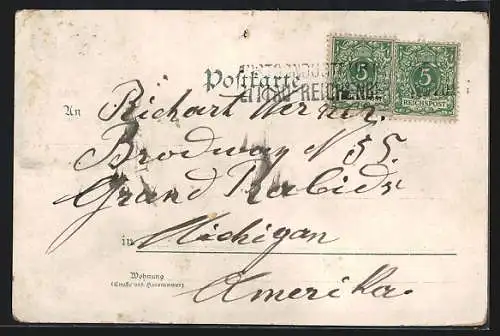 5 5
REICHSPOST
Postkarte
ZITTAU-REICHENBG.
An Richart Werner.
Brodway N 55.
Grand Rabids
in Michigan
Wohnung
(Straße und Hausnummer)
Amerika.